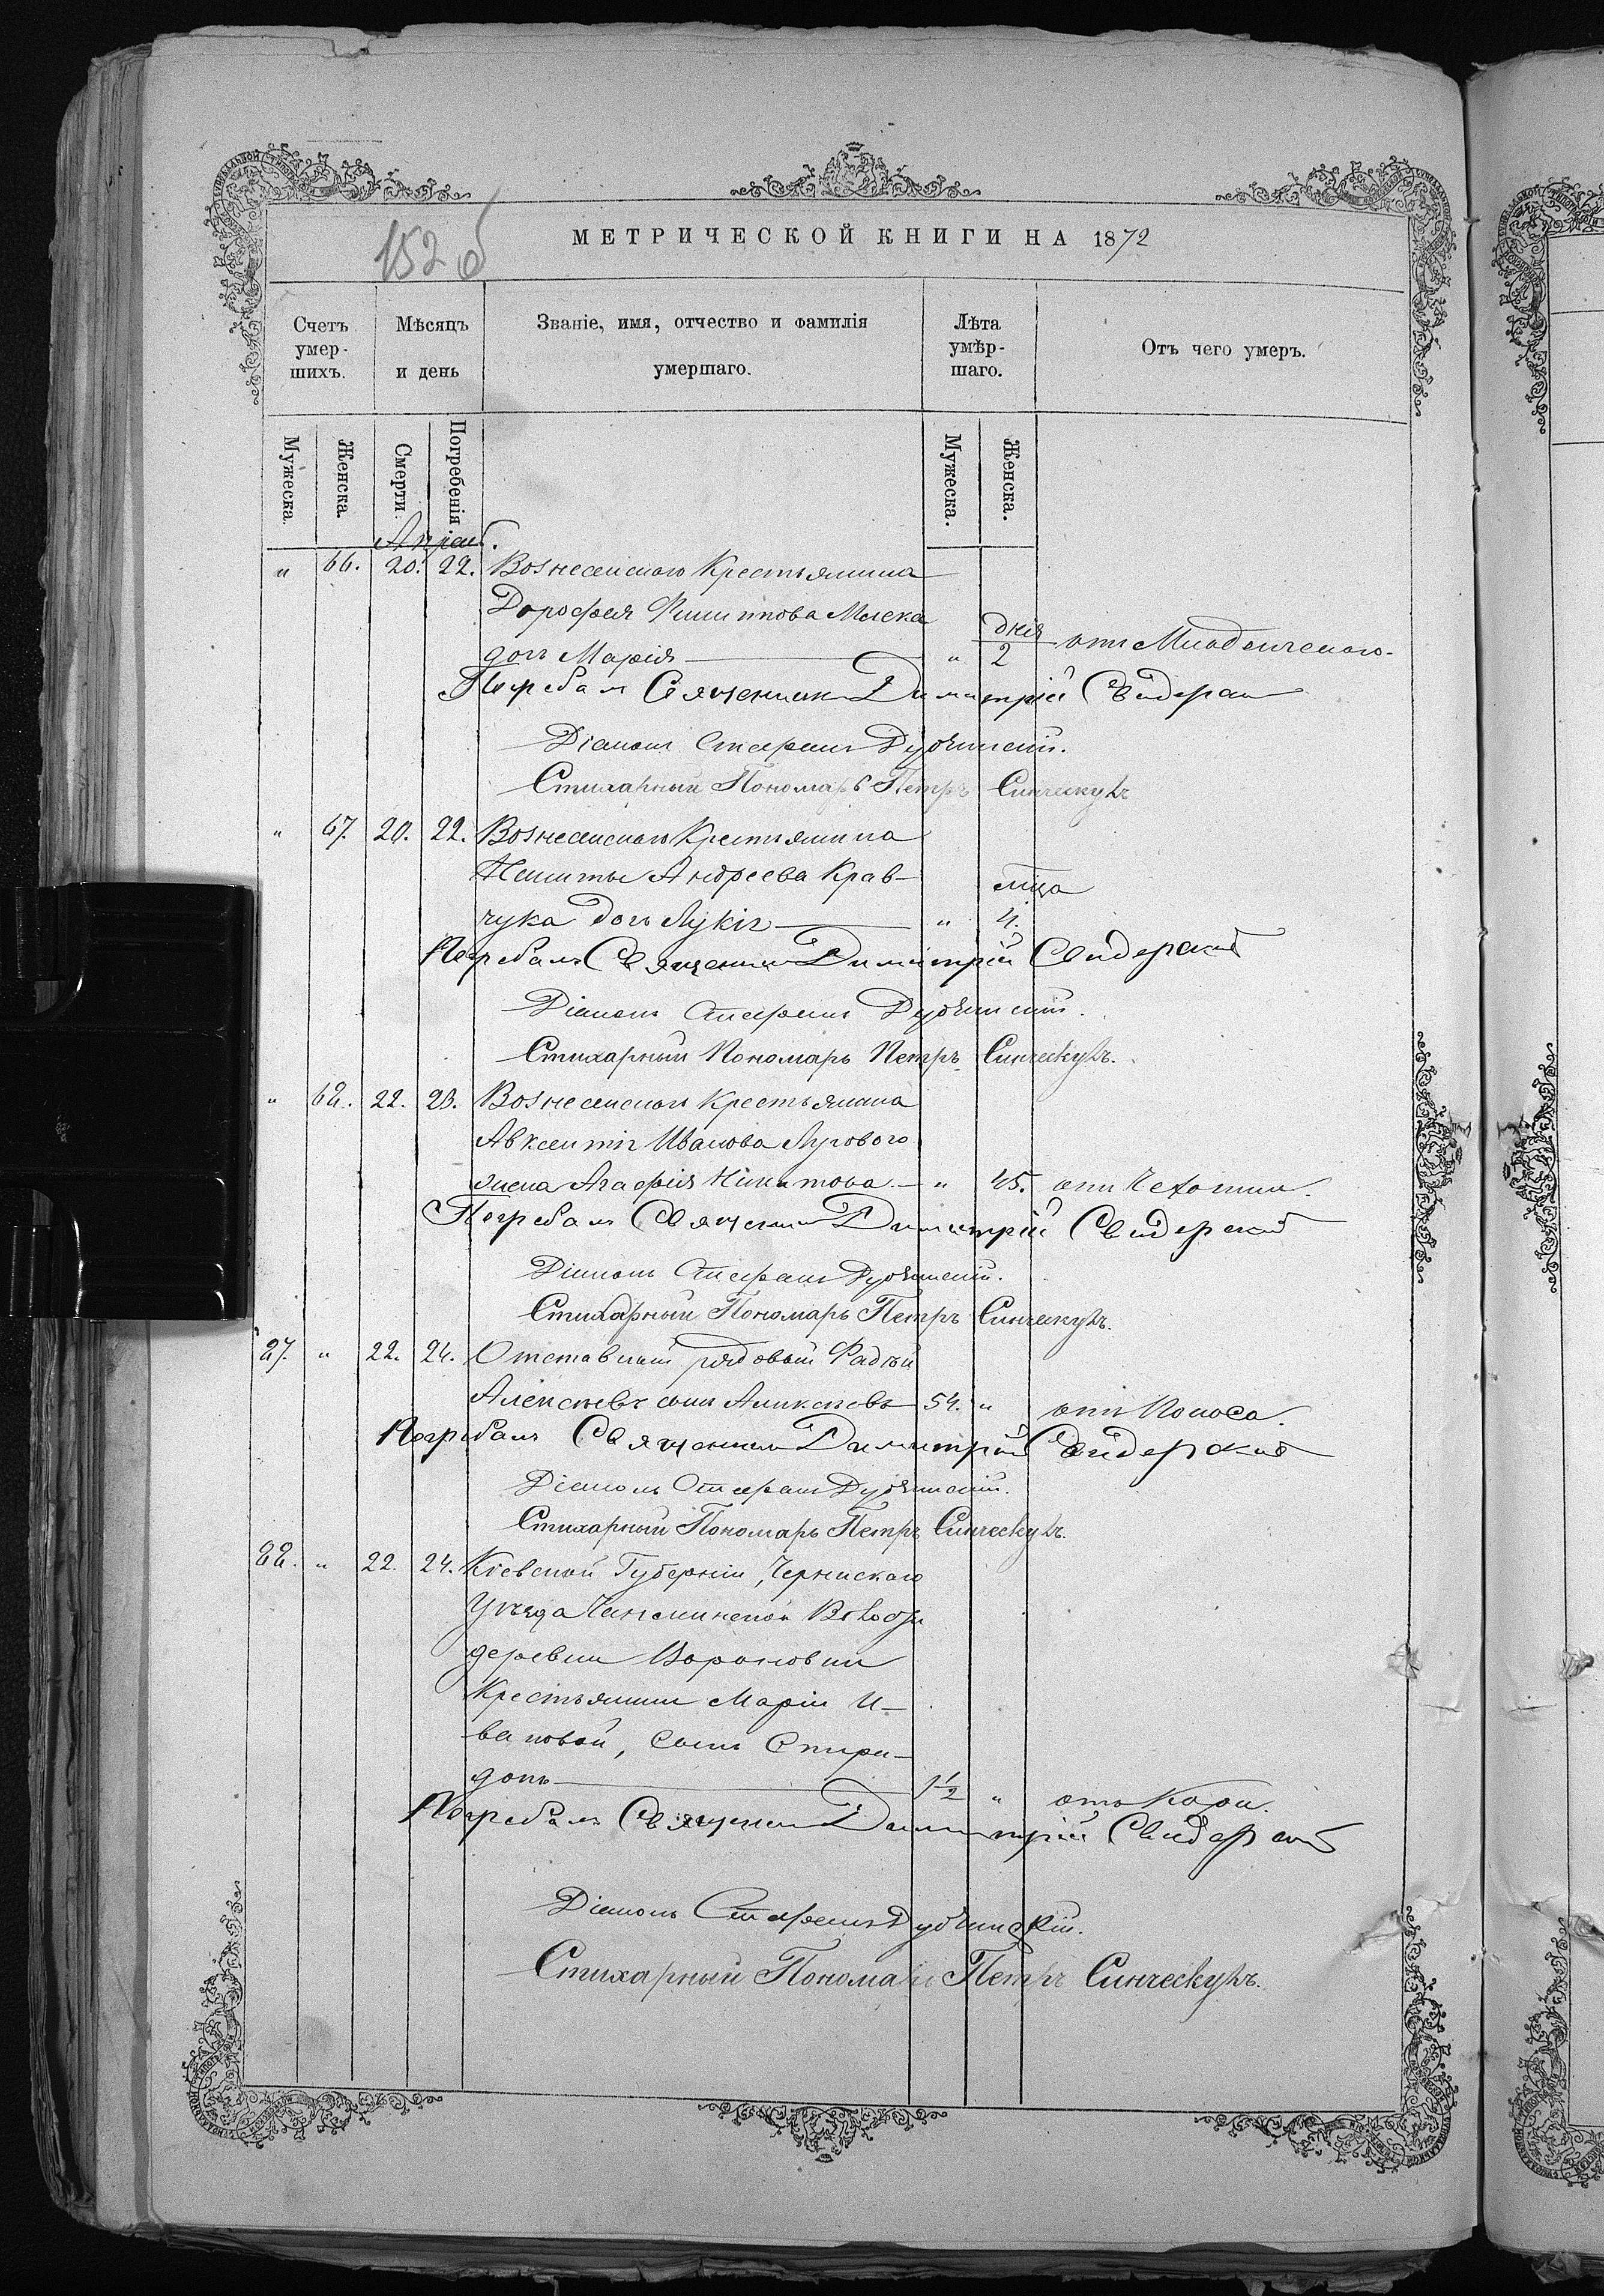 152 об
МЕТРИЧЕСКОЙ КНИГИ НА 1872
Счетъ умер-шихъ.
Мѣсяцъ и день
Званіе, имя, отчество и фамилія умершаго.
Лѣта умѣр-шаго.
Отъ чего умеръ.
Мужеска.
Женска.
Смерти.
Погребенія.
Мужеска.
Женска.
Апрель.
" 66. 20. 22. Вознесенскаго Крестьянина
Дорофея Филиппова
дочь Марія " дня 2 отъ Младенческаго.
Погребалъ Священникъ Димитрій Свидерскій
Діаконъ Стефанъ
Стихарный Пономарь Петръ Синческулъ
" 67. 20. 22. Вознесенскаго Крестьянина
Никиты Андреева Крав-
чука дочь Лукія " мца 4.
Погребалъ Священникъ Димитрій Свидерскій
Діаконъ Стефанъ
Стихарный Пономарь Петръ Синческулъ.
" 68. 22. 23. Вознесенскаго Крестьянина
Авксентія Иванова Лугового
жена Агафія Никитова " 45. отъ Чахотки.
Погребалъ Священникъ Димитрій Свидерскій
Діаконъ Стефанъ
Стихарный Пономарь Петръ Синческулъ.
87. " 22. 24. Отставный рядовый Фадѣй
Алексѣевъ сынъ Алексѣевъ 54. " отъ Поноса.
Погребалъ Священникъ Димитрій Свидерскій
Діаконъ Стефанъ
Стихарный Пономарь Петръ Синческулъ.
88. " 22. 24. Кіевской Губерніи,
Уѣзда Волости
деревни
Крестьянки Маріи И-
вановой, сынъ Спири-
донъ 1 1/2 " отъ Кори.
Погребалъ Священникъ Димитрій Свидерскій
Діаконъ Стефанъ
Стихарный Пономарь Петръ Синческулъ.